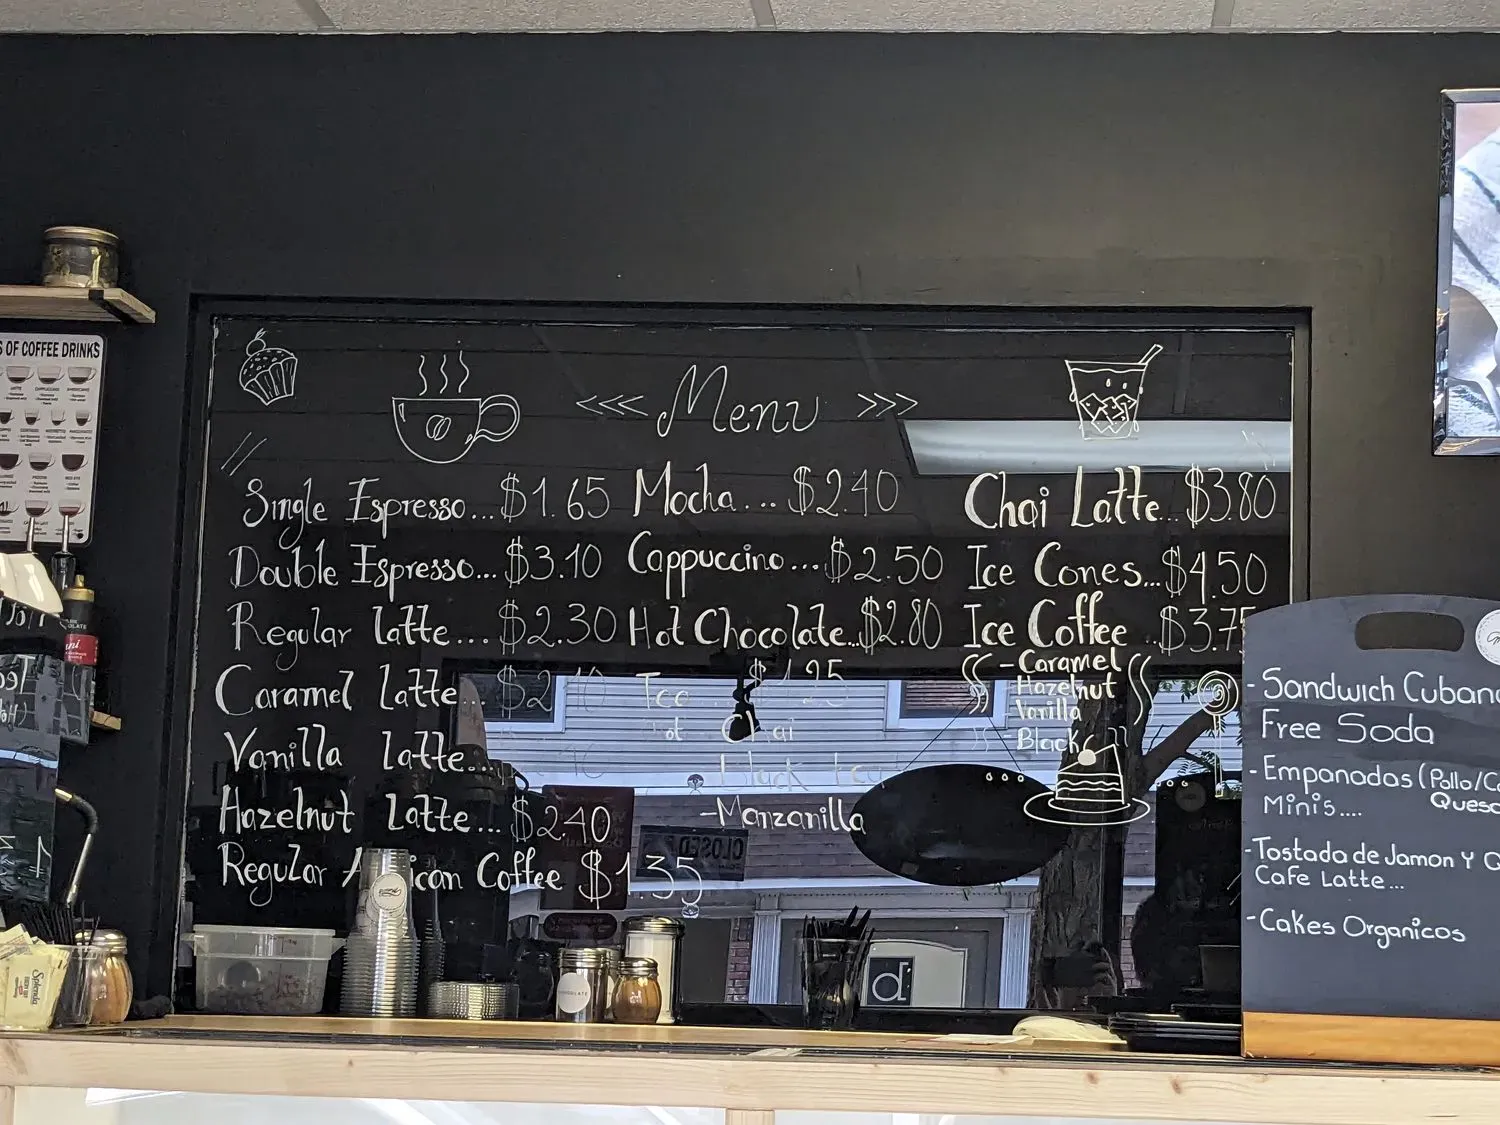 S OF COFFEE DRINKS
<<< Menu >>>
Single Espresso...$1.65
Double Espresso...$3.10
Regular latte...$2.30
Caramel latte...
Vanilla latte...
Hazelnut Latte...$2.40
Regular A ican Coffee $1.35
Mocha...$2.40
Cappuccino...$2.50
Hot Chocolate...$2.80
Chai
Black tea
-Manzanilla
Chai Latte...$3.80
Ice Cones...$4.50
Ice Coffee...$3.75
-Caramel
-Hazelnut
Vanilla
-Black
-Sandwich Cubano
Free Soda
-Empanadas (Pollo/Ca
Queso
Minis....
-Tostada de Jamon Y Q
Cafe Latte...
-Cakes Organicos
Splenda
CLOSED
d